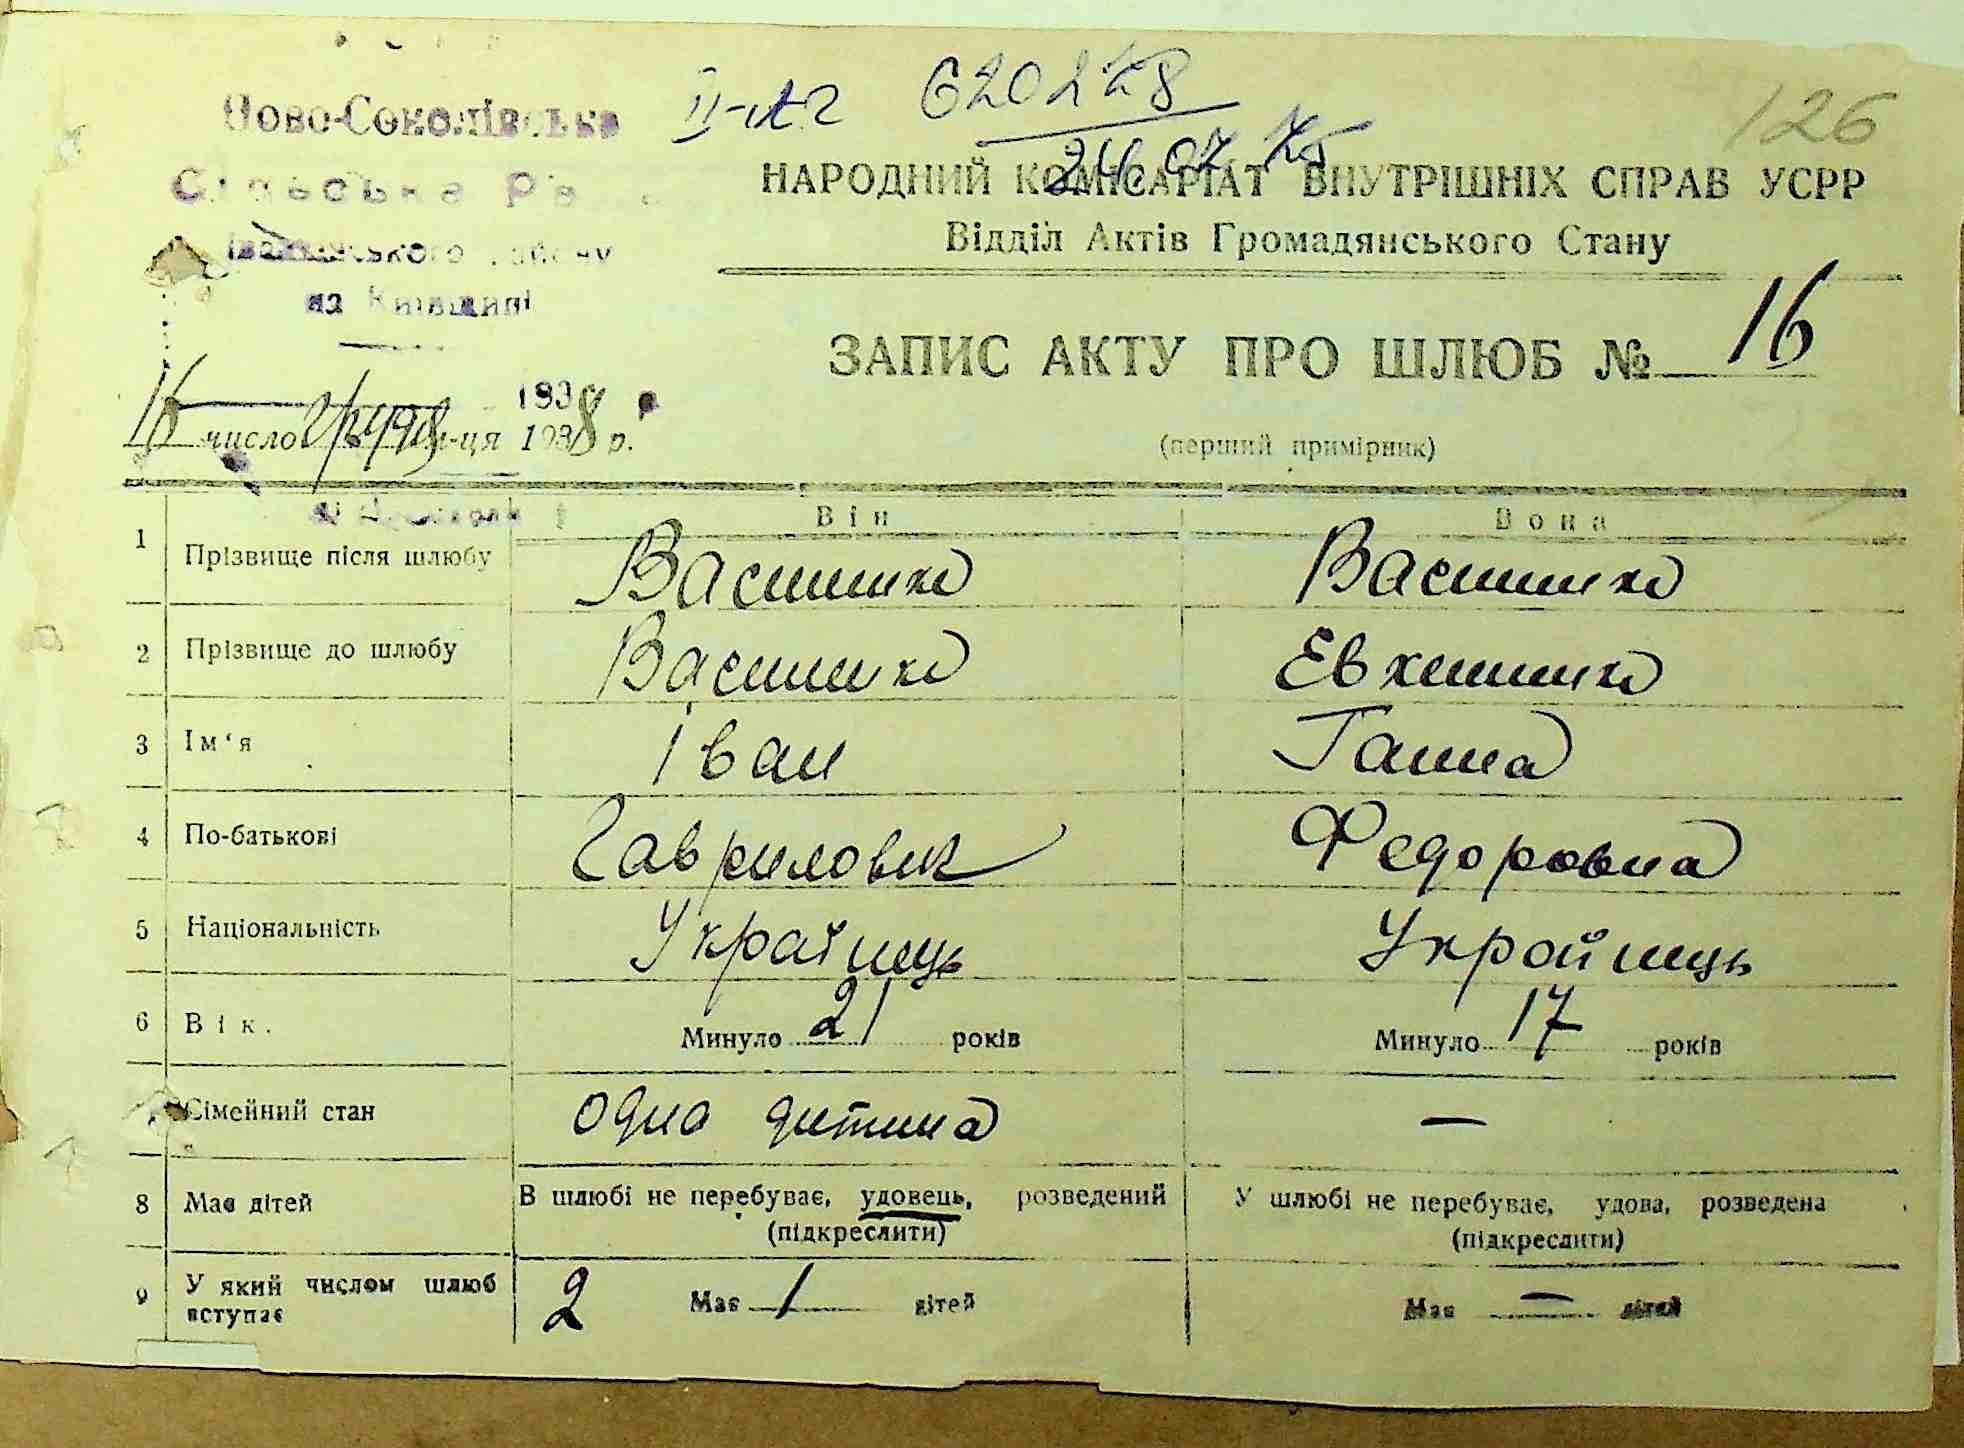 Ново-Соколівська
ІІ-ИЛ 620278
126
Сільська Рада
24.07.75
НАРОДНИЙ КОМІСАРІАТ ВНУТРІШНІХ СПРАВ УСРР
Відділ Актів Громадянського Стану
району
на Київщині
ЗАПИС АКТУ ПРО ШЛЮБ № 16
193
16 число грудня м-ця 1938 р.
(перший примірник)
Він Вона
1 Прізвище після шлюбу Василико Василико
2 Прізвище до шлюбу Василико
3 Ім'я Іван Ганна
4 По-батькові Гаврилович Федоровна
5 Національність Українець Украйнець
6 Вік. Минуло 21 років Минуло 17 років
Сімейний стан одна дитина —
8 Має дітей В шлюбі не перебуває, удовець, розведений У шлюбі не перебуває, удова, розведена
(підкреслити) (підкреслити)
9 У який числом шлюб вступає 2 Має 1 дітей Має — дітей